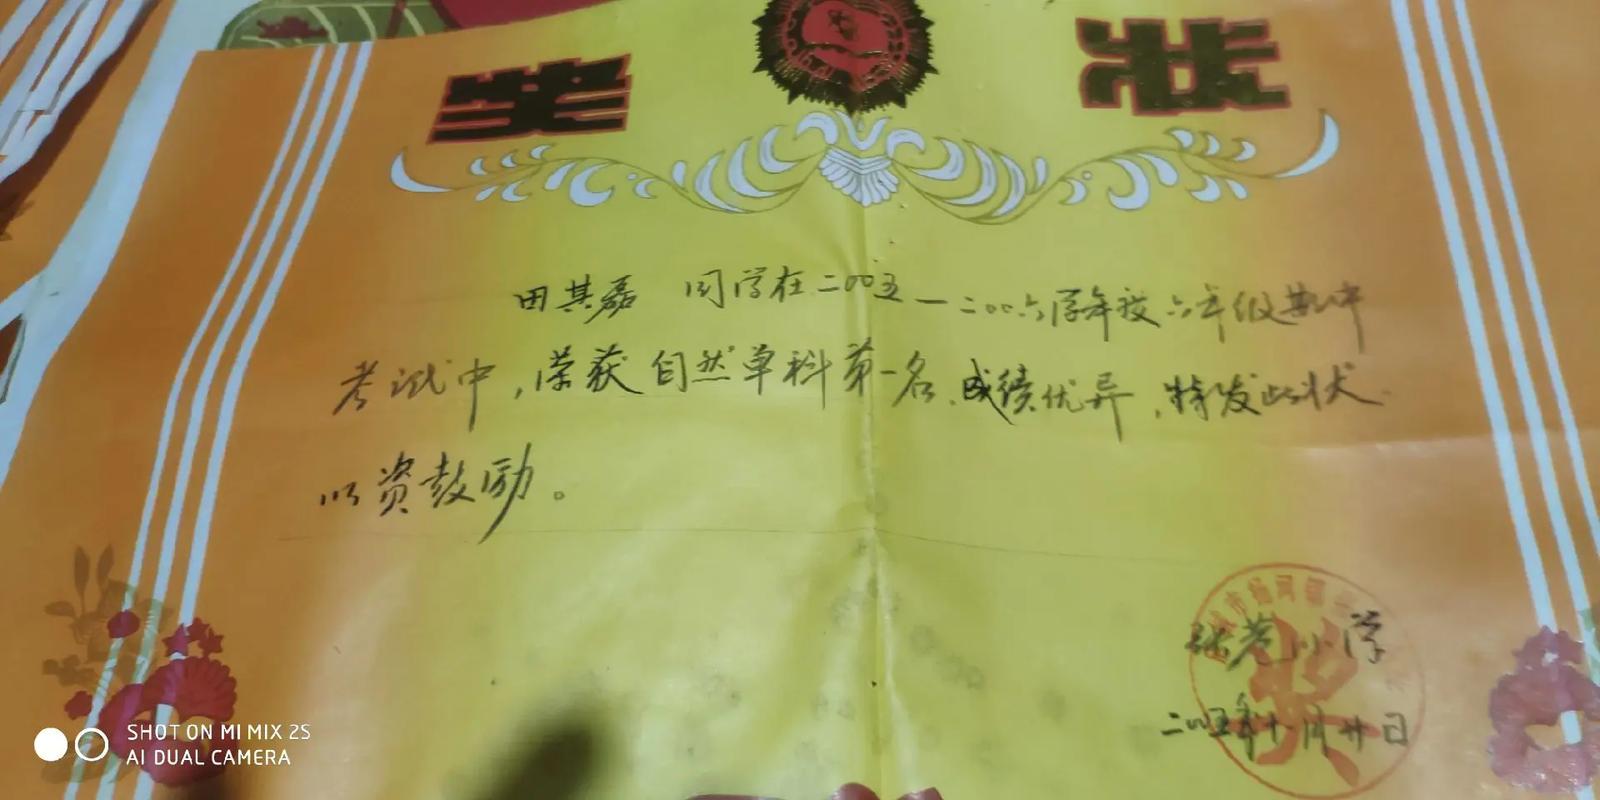 奖状
田其磊 同学在二〇〇五—二〇〇六学年度六年级期中
考试中，荣获自然单科第一名，成绩优异，特发此状
以资鼓励。
小学
二〇〇五年十一月廿日
奖
SHOT ON MI MIX 2S
AI DUAL CAMERA